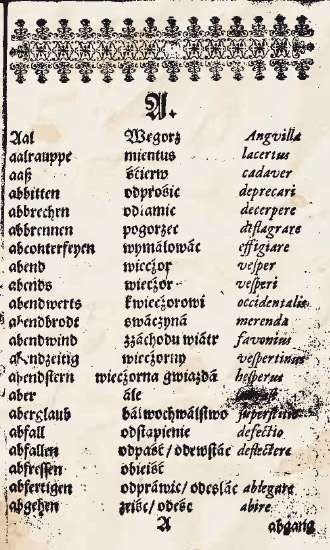 A.
Aal Węgorz Angvilla
aalrauppe mientus lacertus
aaß śćierw cadaver
abbitten odprośic deprecari
abbrechen odłamic decerpere
abbrennen pogorzec deflagrare
abconterfeyen wymálowác effigiare
abend wieczor vesper
abends wieczor vesperi
abendwerts kwieczorowi occidentalis
abendbrodt swáczyná merenda
abendwind zzáchodu wiátr favonius
abendzeitig wieczorny vespertinus
abendstern wieczorna gwiazdá hesperus
aber ále
aberglaub báłwochwálstwo superstitio
abfall odstąpienie defectio
abfallen odpaść / odewstác deflectere
abfressen obieść
abfertigen odpráwic / odesłác ablegare
abgehen zeiść / odeść abire
A abgang